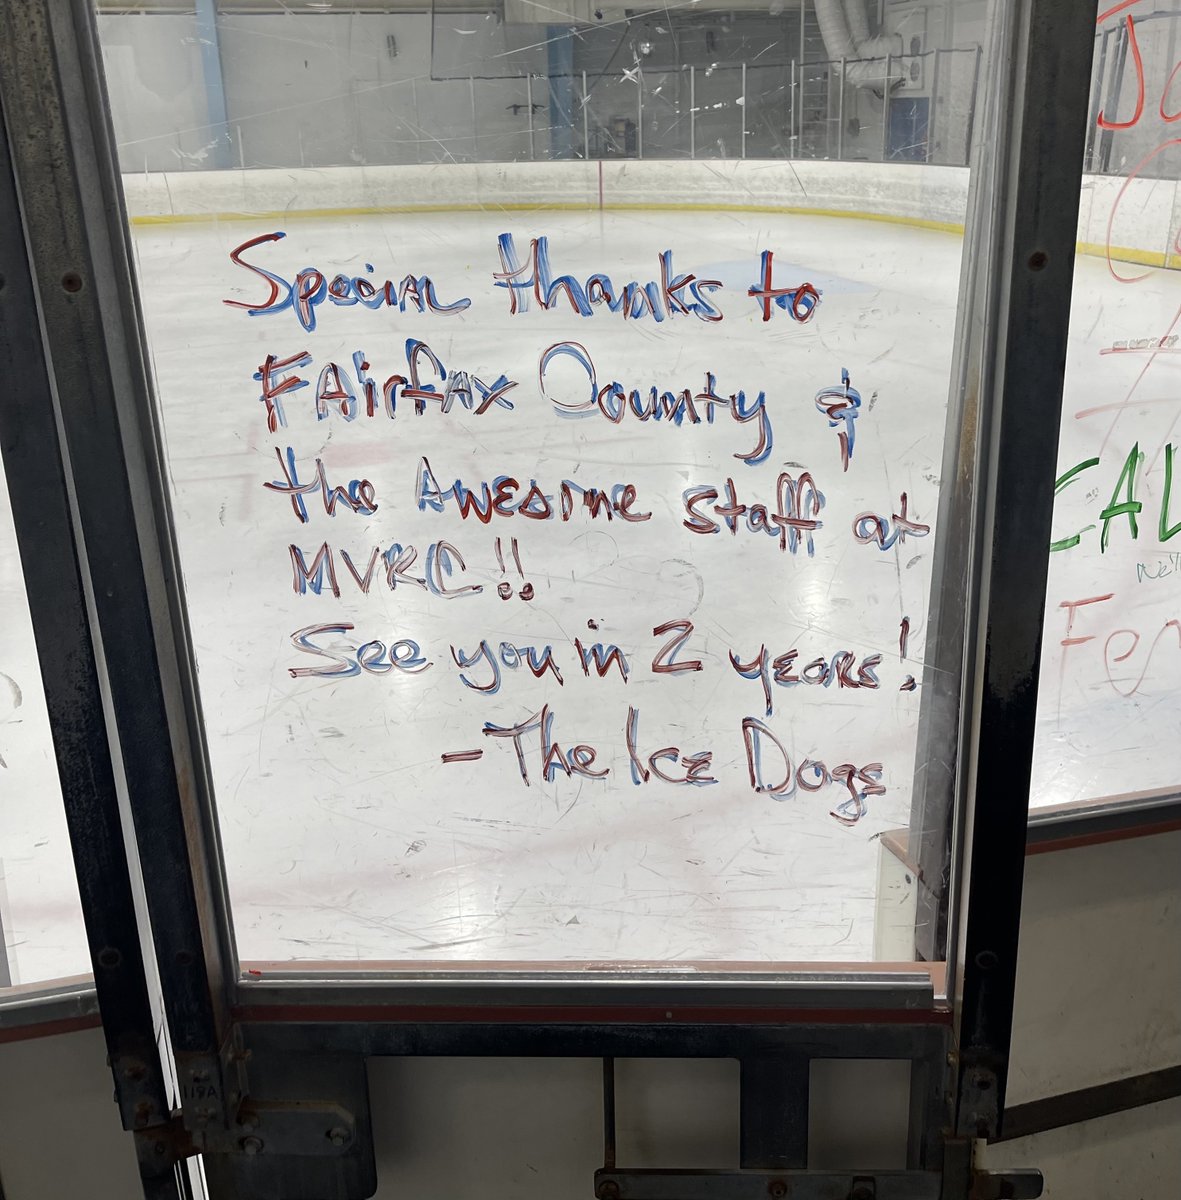 Special thanks to
Fairfax County &
the Awesome staff at
MVRC!!
See you in 2 years!
- The Ice Dogs
CAL
We'll
Fer
119A